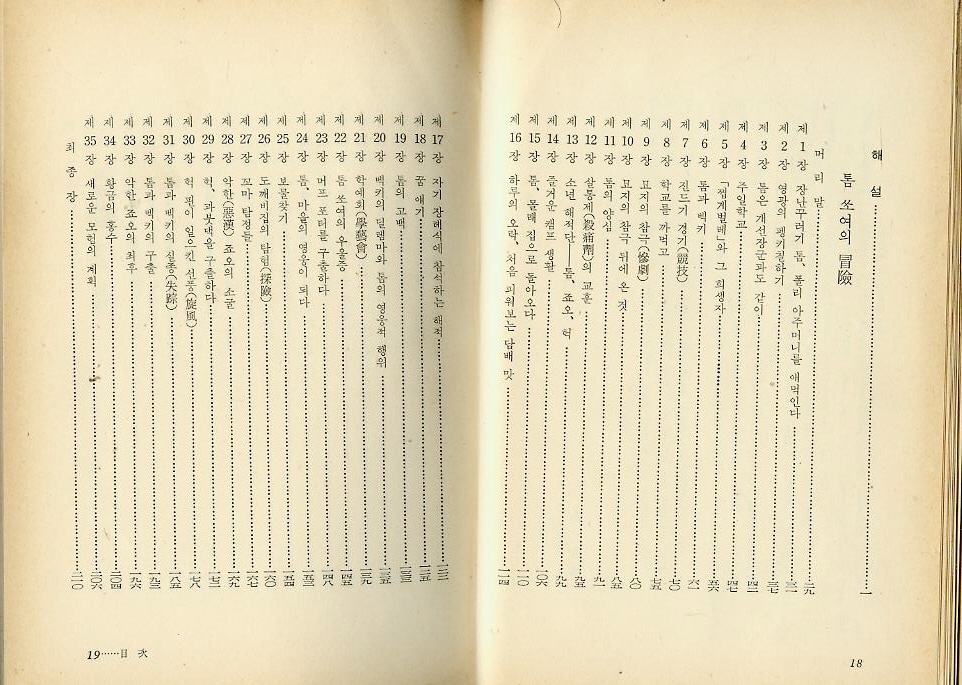 해 설 一
톰 쏘여의 冒險
머 리 말
제 1 장 장난꾸러기 톰, 폴리 아주머니를 애먹인다 二九
제 2 장 영광의 펭키칠하기 三一
제 3 장 톰은 개선장군과도 같이 三七
제 4 장 주일학교 四二
제 5 장 「찝게벌레」와 그 희생자 四七
제 6 장 톰과 벡키 五六
제 7 장 진드기 경기(競技) 六一
제 8 장 학교를 까먹고 七〇
제 9 장 묘지의 참극(慘劇) 七五
제 10 장 묘지의 참극 뒤에 온 것 八〇
제 11 장 톰의 양심 八五
제 12 장 살통제(殺痛劑)의 교훈 九一
제 13 장 소년 해적단——톰, 죠오, 헉 九五
제 14 장 즐거운 캠프 생활 九九
제 15 장 톰, 몰래 집으로 돌아오다 一〇六
제 16 장 하루의 오락, 처음 피워보는 담배 맛 一一四
18
제 17 장 자기 장례식에 참석하는 해적 一二二
제 18 장 꿈 얘기 一二五
제 19 장 톰의 고백 一三三
제 20 장 벡키의 딜렘마와 톰의 영웅적 행위 一三五
제 21 장 학예회(學藝會) 一三九
제 22 장 톰 쏘여의 우울증 一四五
제 23 장 머프 포터를 구출하다 一四八
제 24 장 톰, 마을의 영웅이 되다 一五三
제 25 장 보물찾기 一五四
제 26 장 도깨비집의 탐험(探險) 一六〇
제 27 장 꼬마 탐정들 一六七
제 28 장 악한(惡漢) 죠오의 소굴 一六九
제 29 장 헉, 과붓댁을 구출하다 一七三
제 30 장 헉 핀이 일으킨 선풍(旋風) 一七八
제 31 장 톰과 벡키의 실종(失踪) 一八五
제 32 장 톰과 벡키의 구출 一九三
제 33 장 악한 죠오의 최후 一九六
제 34 장 황금의 홍수 二〇四
제 35 장 새로운 모험의 계획 二〇六
최 종 장 二一〇
19……目 次